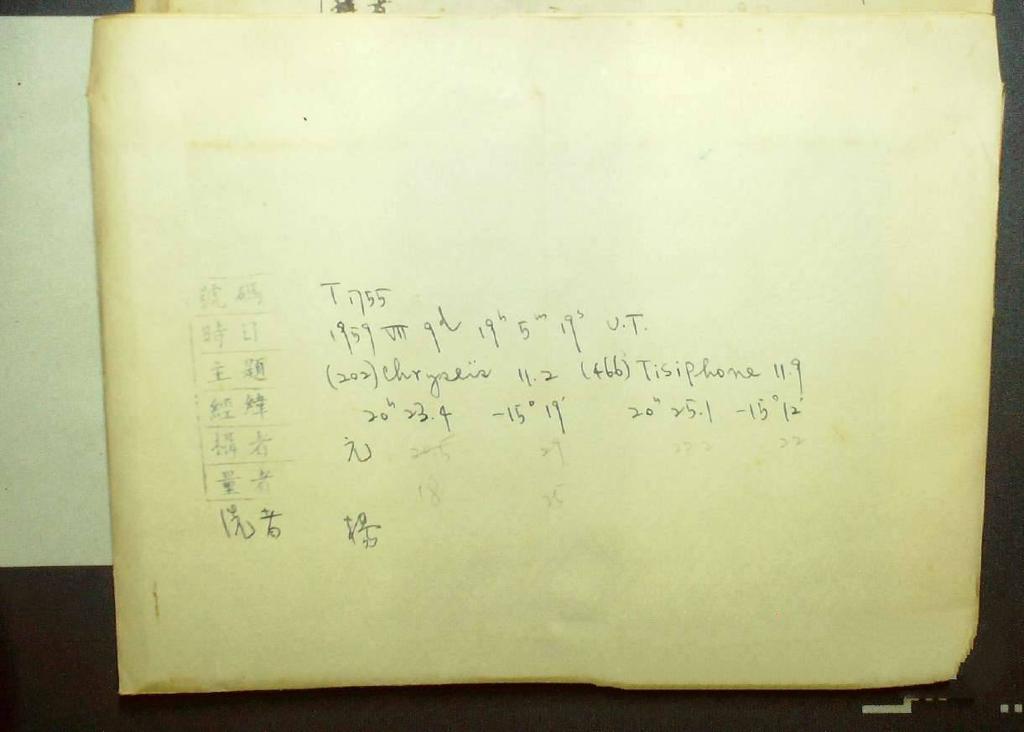 號碼 T 1755
時日 1959 VII 9ᵈ 19ʰ 5ᵐ 19ˢ U.T.
主題 (202) Chryseïs 11.2 (466) Tisiphone 11.9
經緯 20ʰ 23.4 -15° 19' 20ʰ 25.1 -15° 12'
攝者 元 29 22
量者 18 25
洗者 楊